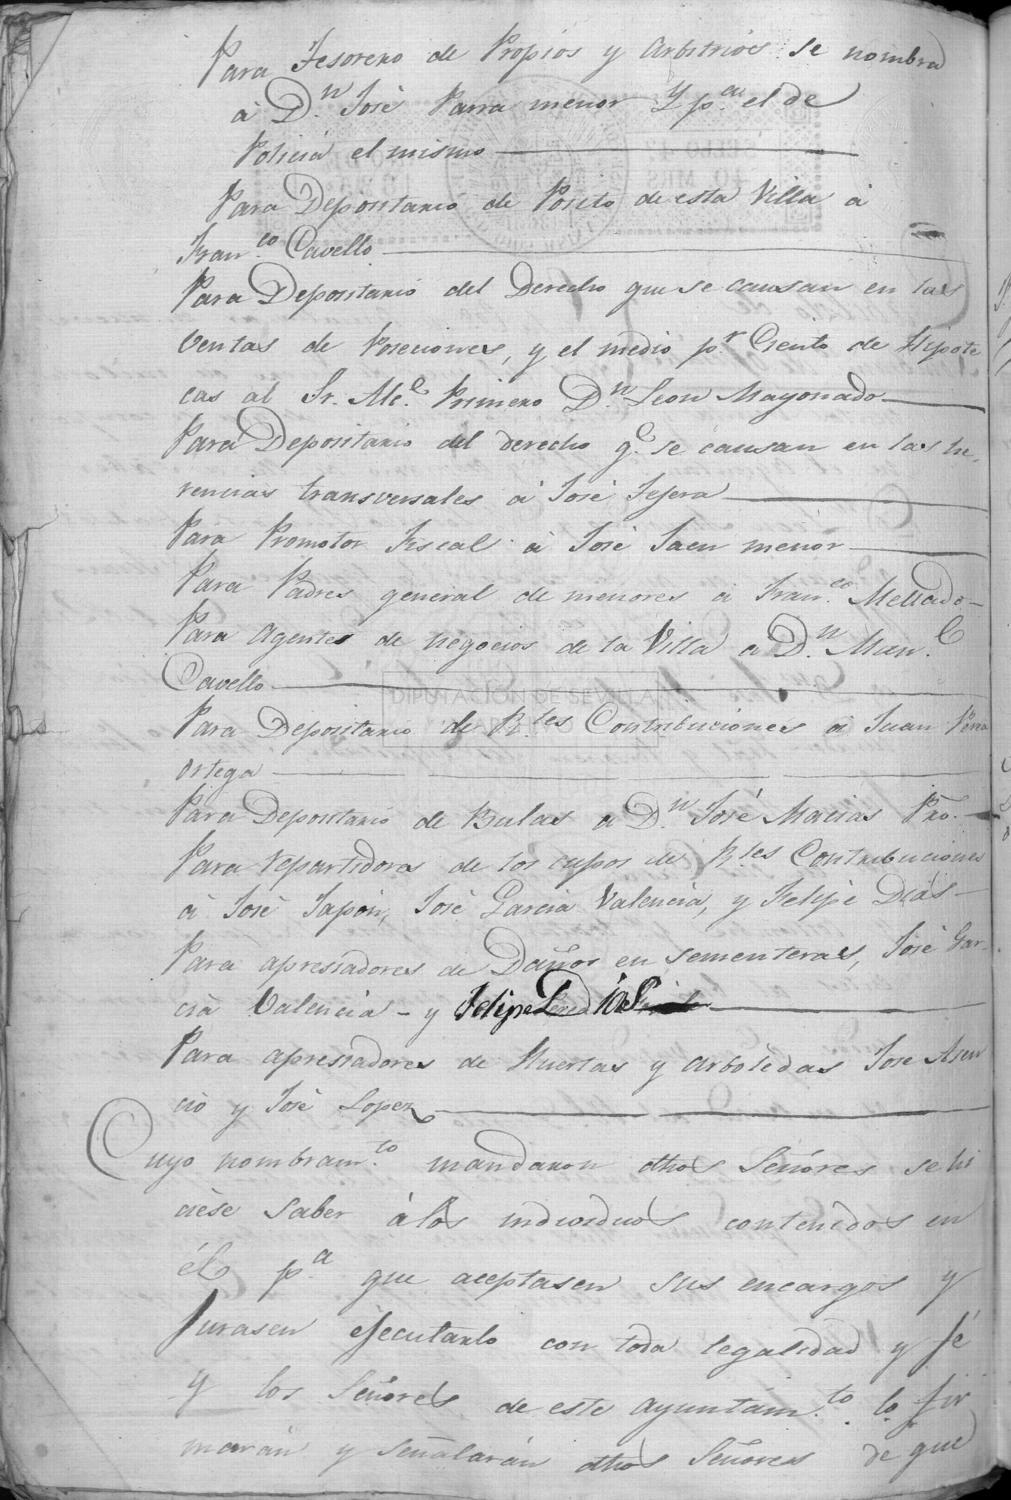 Para Tesorero de Propios y Arbitrios se nombra
à D.n José Parra menor Y p.a el de
Policia el mismo
Para Depositario de Posito de esta Villa à
Fran.co Cavello
Para Depositario del Derecho que se causan en las
Ventas de Poseciones, y el medio p.r Ciento de Hipote
cas al Sr. Alc.e Primero D.n Leon Mayorado
Para Depositario del derecho q.e se causan en las he-
rencias transversales à José Tejera
Para Promotor Fiscal à José Jaen menor
Para Padres general de menores a Fran.co Mellado
Para Agentes de negocios de la Villa a D.n Man.l
Cavello
DIPUTACIÓN DE SEVILLA
Para Depositario de R.les Contribuciones à Juan Parra
Ortega
Para Depositario de Bulas a D.n José Macias Pro.
Para repartidora de los cupos de R.les Contribuciones
à José Japon, José Garcia Valencia, y Felipe Dias
Para apresiadores de Daños en sementeras, José Gar-
cia Valencia - y Felipe Dias
Para apresiadores de Huertas y Arboledas Jose Asen
cio y José Lopez
Cuyo nombram.to mandaron dhos Señores se hi
ciese saber à los individuos contenidos en
él p.a que aceptasen sus encargos y
Jurasen ejecutarlo con toda legalidad y fé
y los Señores de este Ayuntam.to lo fir
marán y señalarán dhos Señores de que